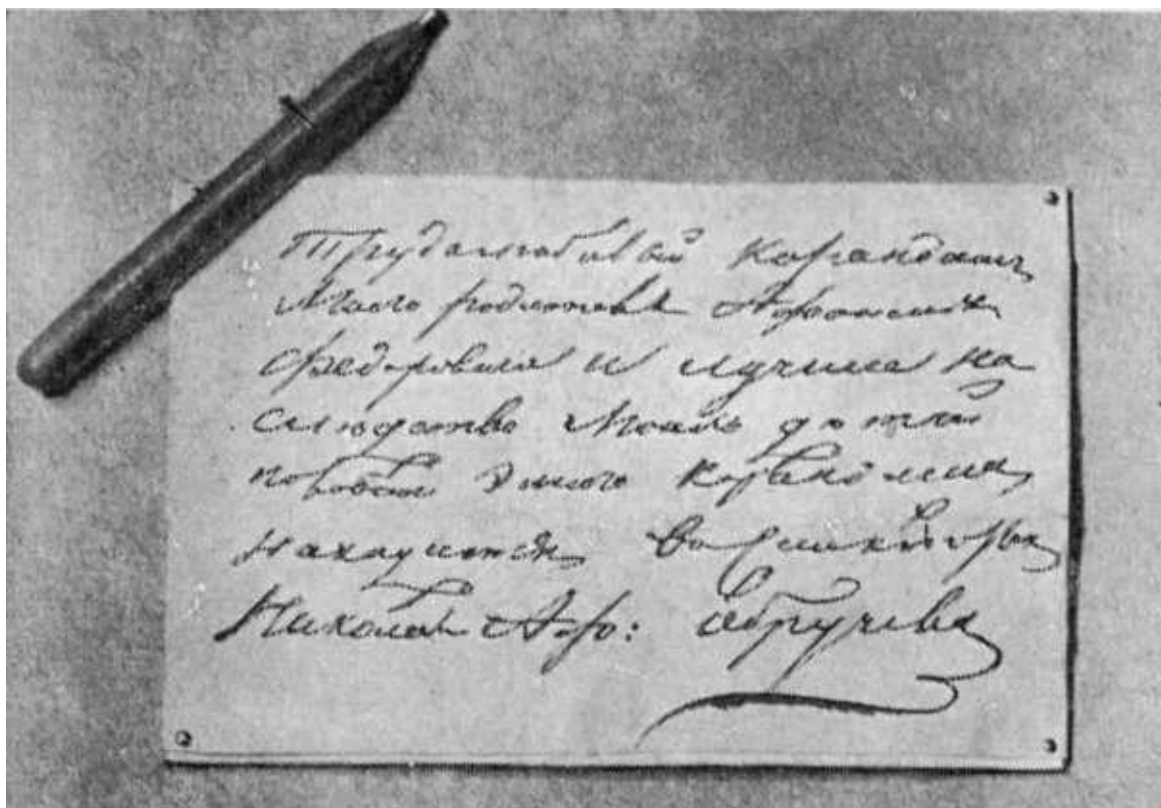 Трудолюбивый карандаш
моего родителя Афанасия
Федоровича и лучшее на
следство моим детям
карандаша
находится
Николай Афо: Обручева